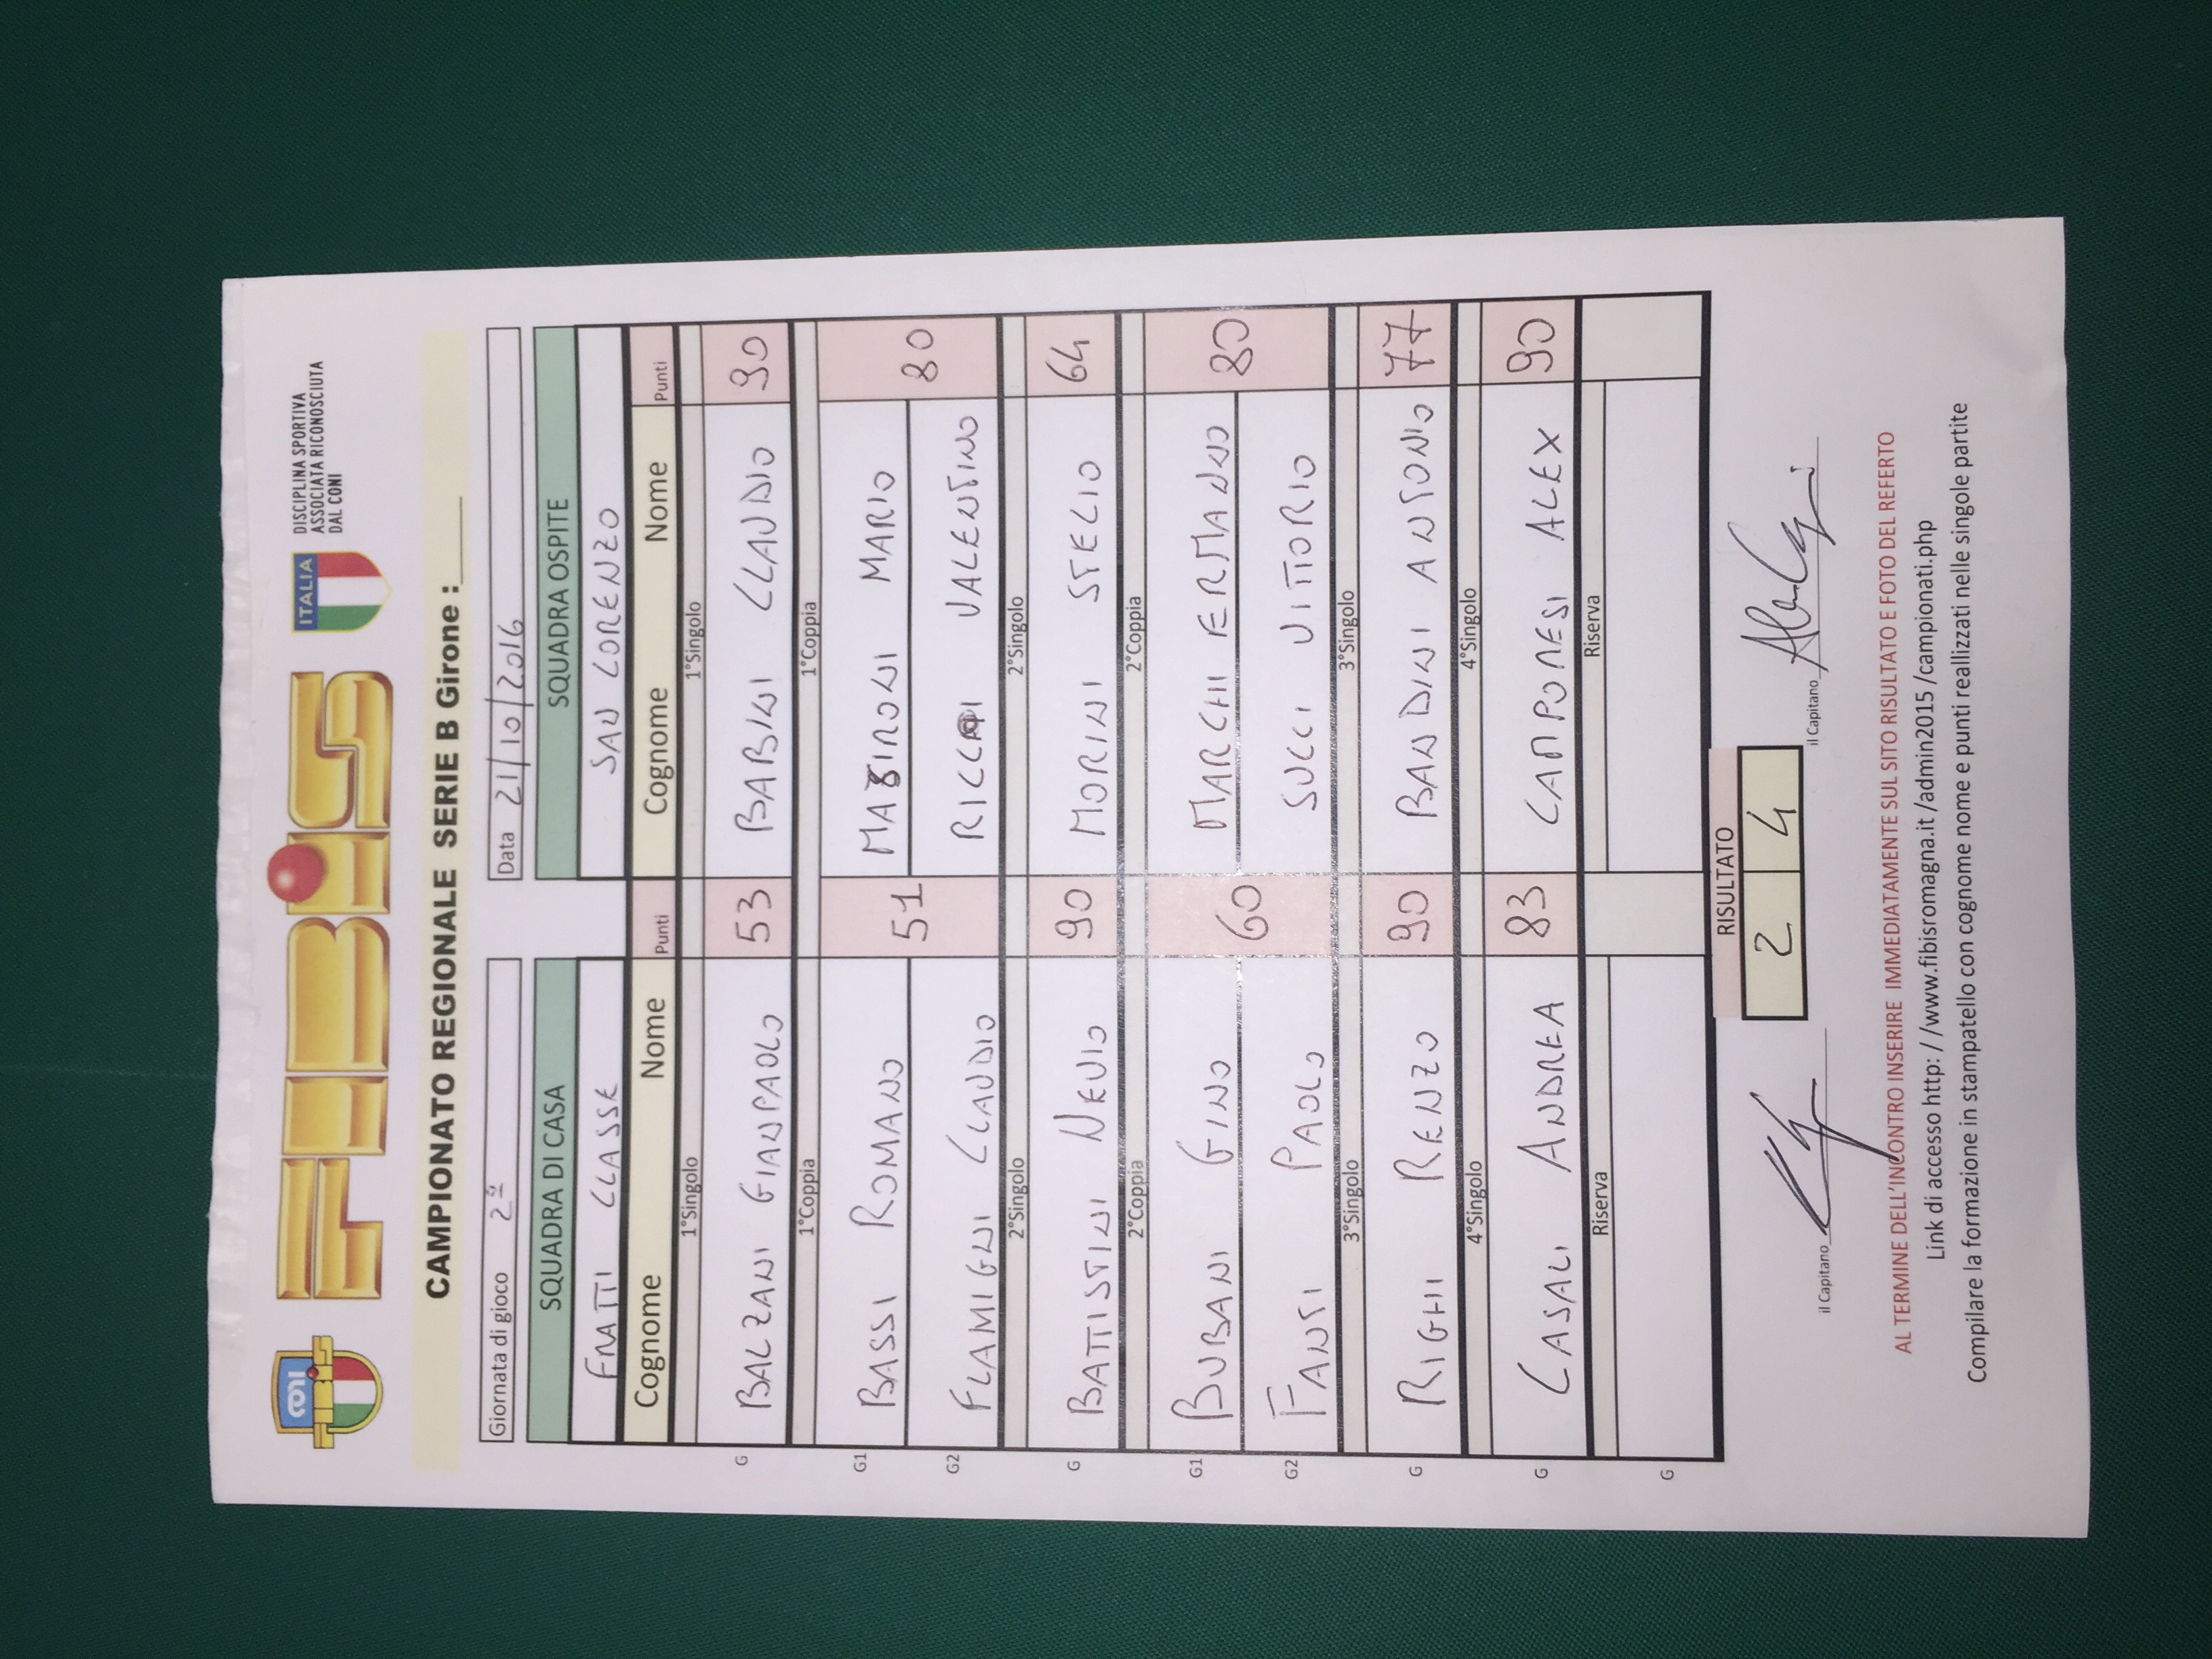 CONI
FIBiS
ITALIA
DISCIPLINA SPORTIVA
ASSOCIATA RICONOSCIUTA
DAL CONI
CAMPIONATO REGIONALE SERIE B Girone :____
Giornata di gioco 2ª Data 21/10/2016
SQUADRA DI CASA SQUADRA OSPITE
FRATTI CLASSE SAN LORENZO
Cognome Nome Punti Cognome Nome Punti
1°Singolo 1°Singolo
G BALZANI GIANPAOLO 53 BABINI CLAUDIO 90
1°Coppia 1°Coppia
G1 BASSI ROMANO 51 MARIO 80
G2 FLAMIGNI CLAUDIO RICCI VALENTINO
2°Singolo 2°Singolo
G BATTISTINI NEVIO 90 MORINI STELIO 64
2°Coppia 2°Coppia
G1 BUBANI GINO 60 MARCHI ERMANNO 80
G2 FANTI PAOLO SUCCI VITTORIO
3°Singolo 3°Singolo
G RIGHI RENZO 90 BANDINI ANTONIO 77
4°Singolo 4°Singolo
G CASALI ANDREA 83 CAMPONESI ALEX 90
Riserva Riserva
G
RISULTATO
2 4
il Capitano il Capitano
AL TERMINE DELL'INCONTRO INSERIRE IMMEDIATAMENTE SUL SITO RISULTATO E FOTO DEL REFERTO
Link di accesso http: / /www.fibisromagna.it /admin2015 /campionati.php
Compilare la formazione in stampatello con cognome nome e punti reallizzati nelle singole partite